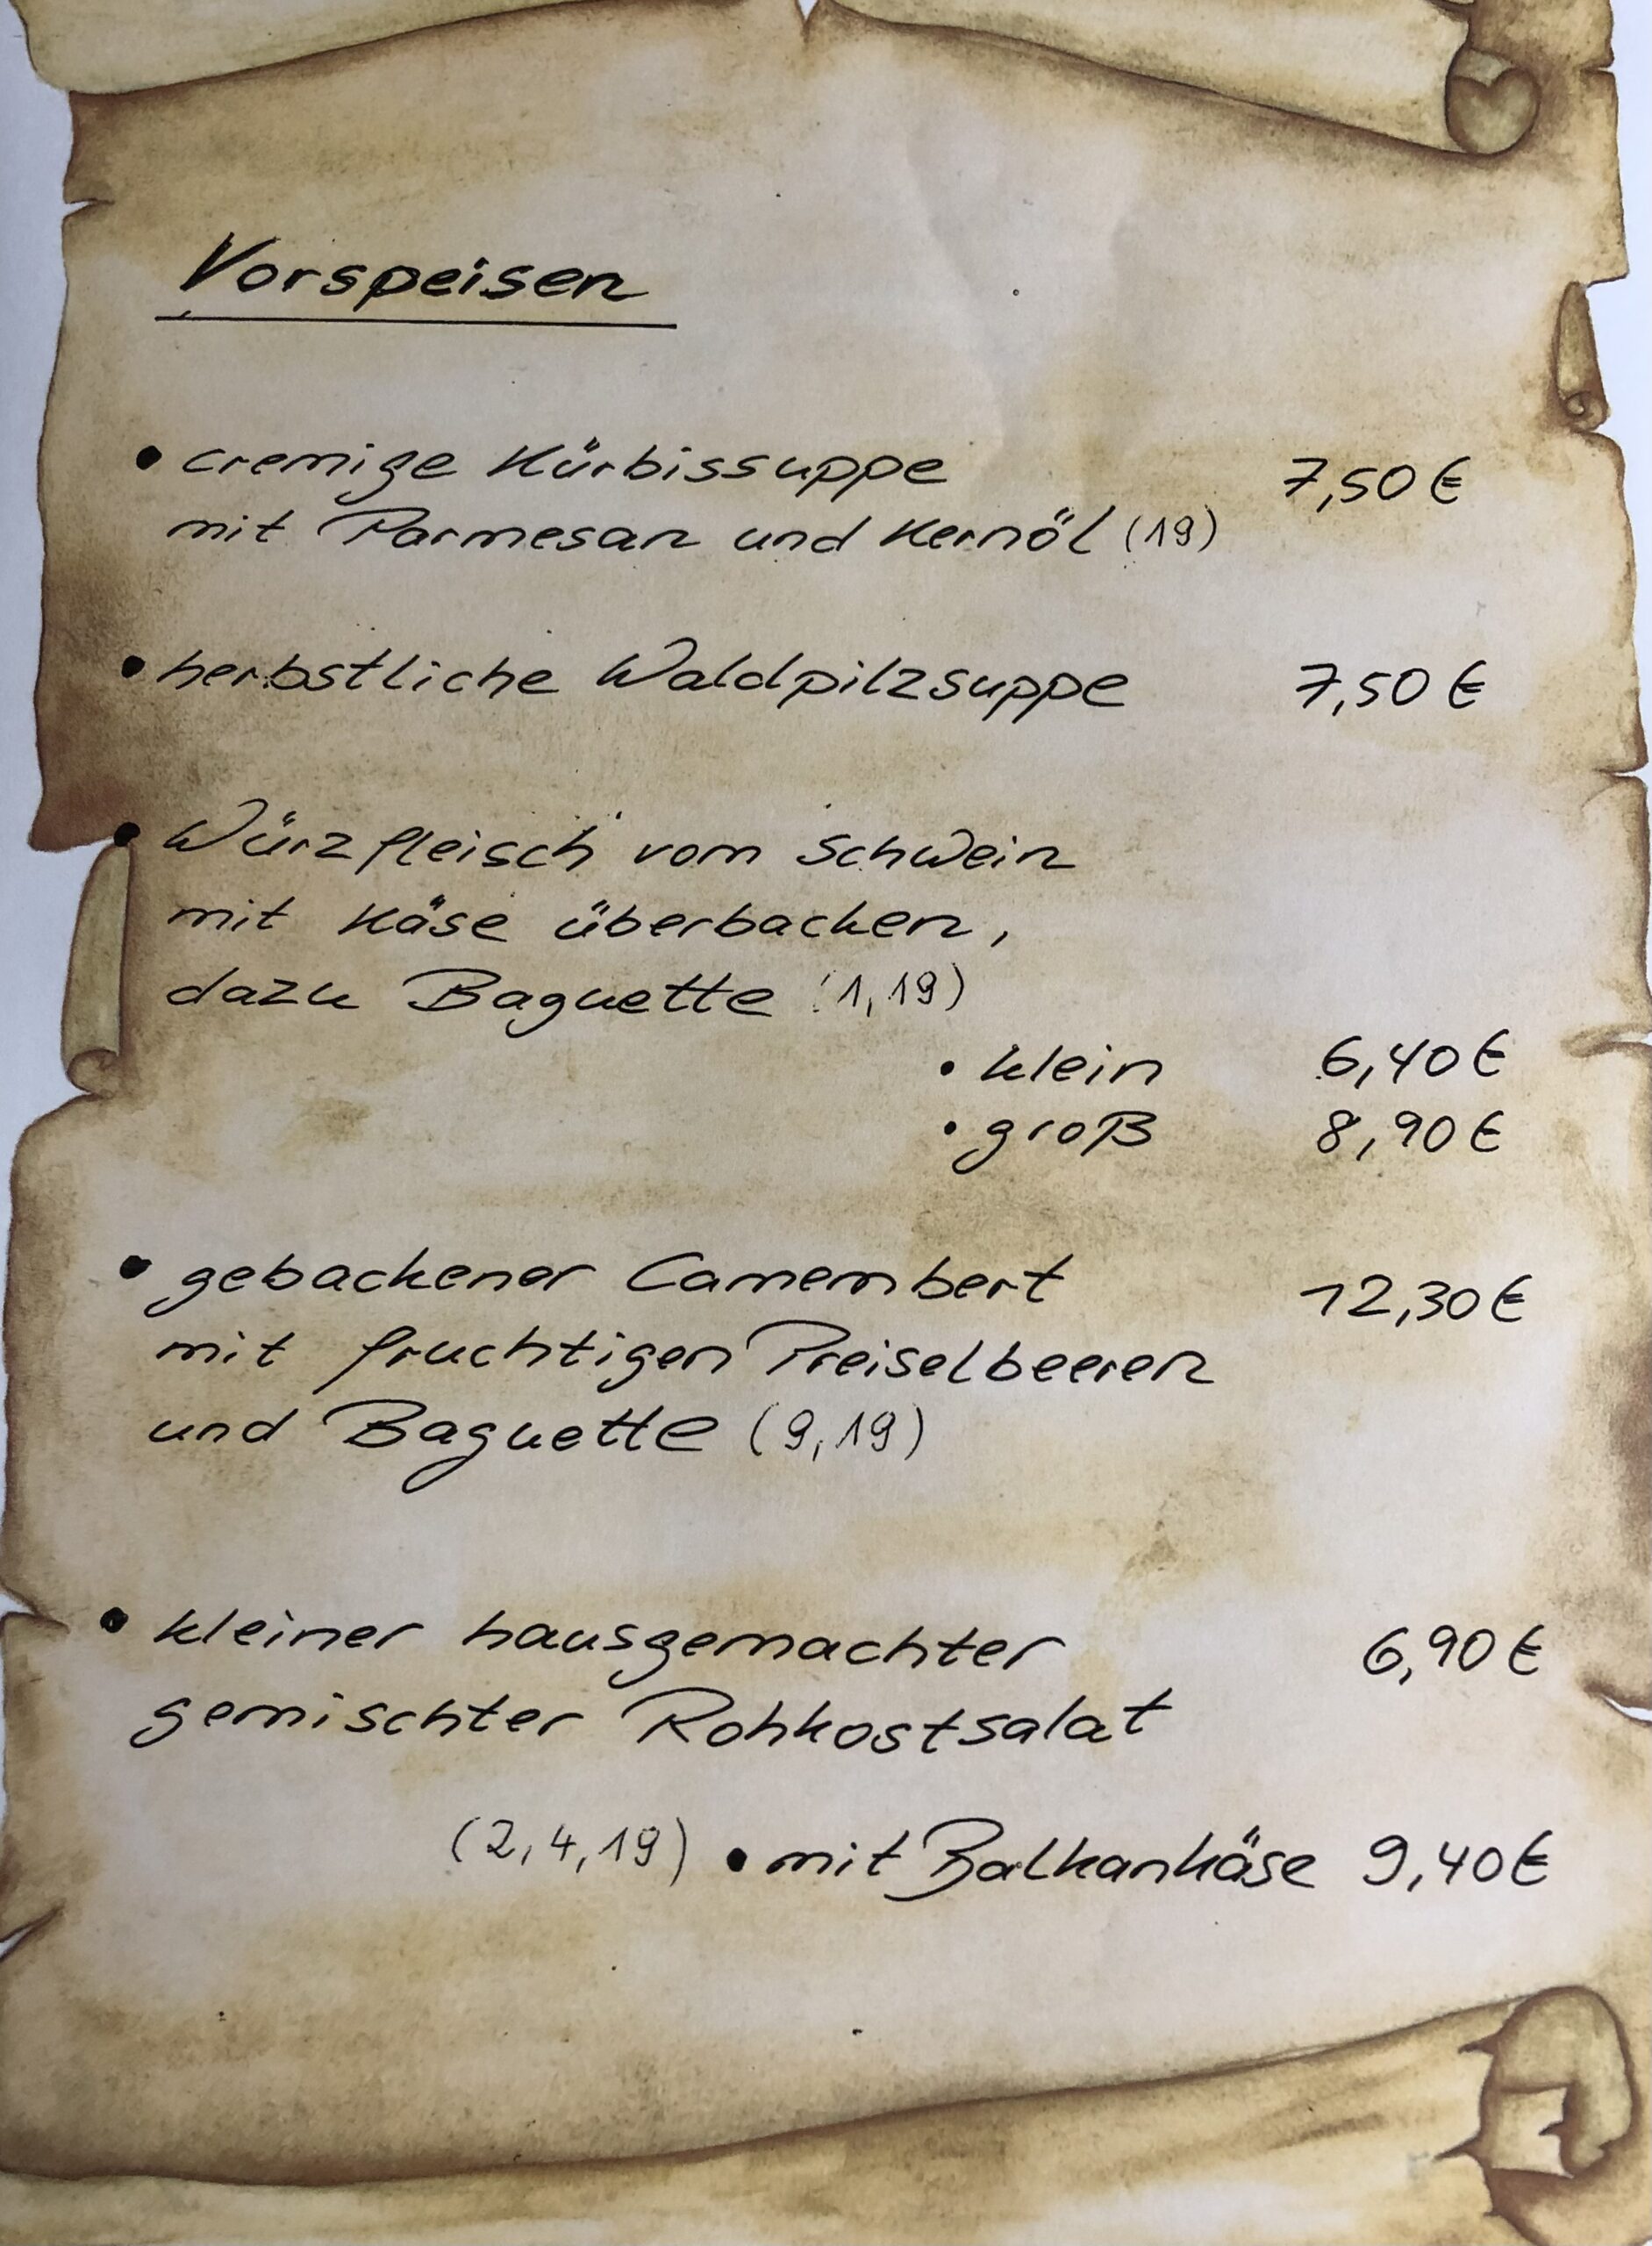 Vorspeisen
• cremige Kürbissuppe 7,50 €
mit Parmesan und Kernöl (19)
• herbstliche Waldpilzsuppe 7,50 €
• Würzfleisch vom Schwein
mit Käse überbacken,
dazu Baguette (1,19)
• klein 6,40 €
• groß 8,90 €
• gebackener Camembert 12,30 €
mit fruchtigen Preiselbeeren
und Baguette (9,19)
• kleiner hausgemachter 6,90 €
gemischter Rohkostsalat
(2,4,19) • mit Balkankäse 9,40 €